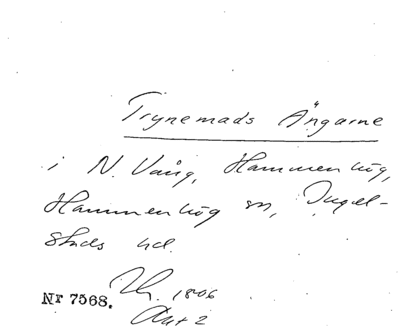 Trynemads Ängarne
i N. Vång, Hammenhög,
Hammenhög sn, Ingel-
stads hd.
1806
Nr 7568.
Akt 2